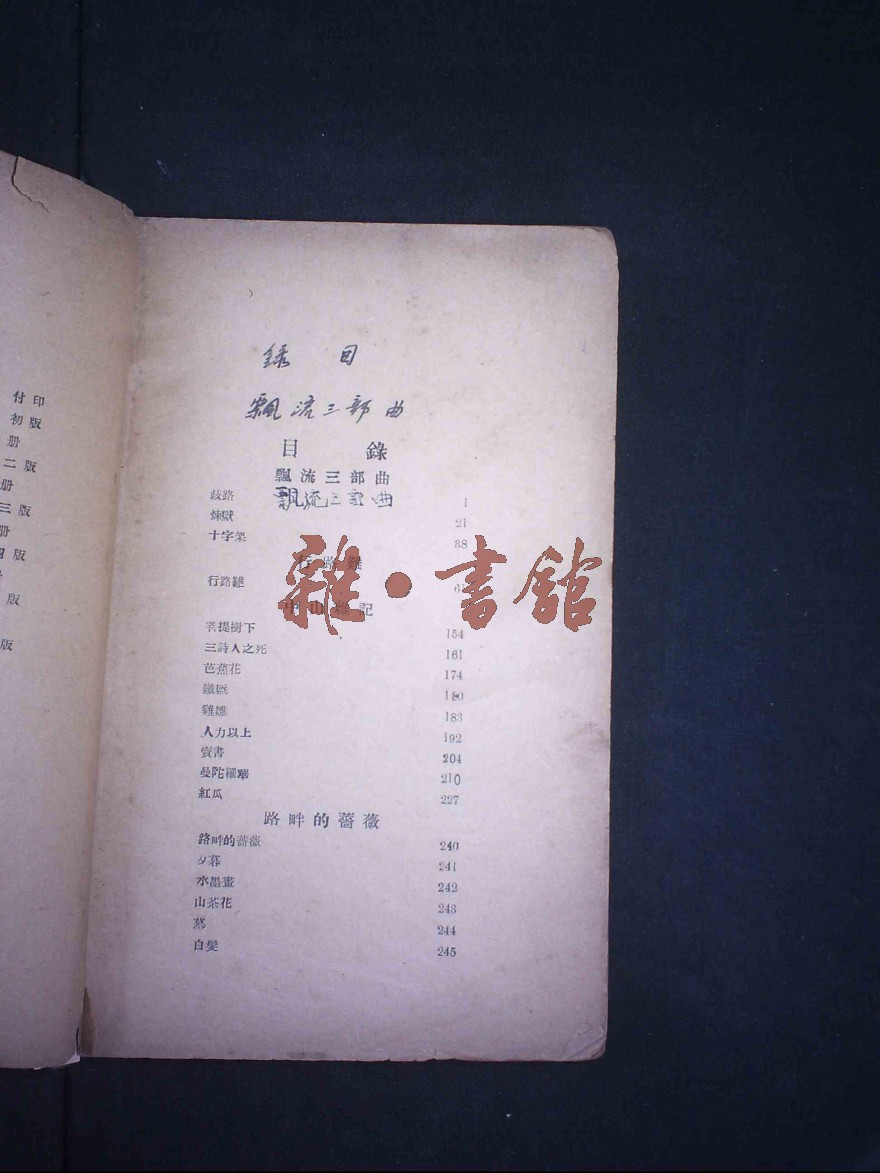 付印
初版
册
二版
册
三版
册
四版
版
版
錄 目
飄流三部曲
目 錄
飄流三部曲
飄流三部曲
歧路 1
煉獄 21
十字架 38
行路難
行路難
山雜記
菩提樹下 154
三詩人之死 161
芭蕉花 174
鐵盔 180
雞雛 183
人力以上 192
賣書 204
曼陀羅華 210
紅瓜 227
路畔的薔薇
路畔的薔薇 240
夕暮 241
水墨畫 242
山茶花 243
墓 244
白髮 245
雜·書館